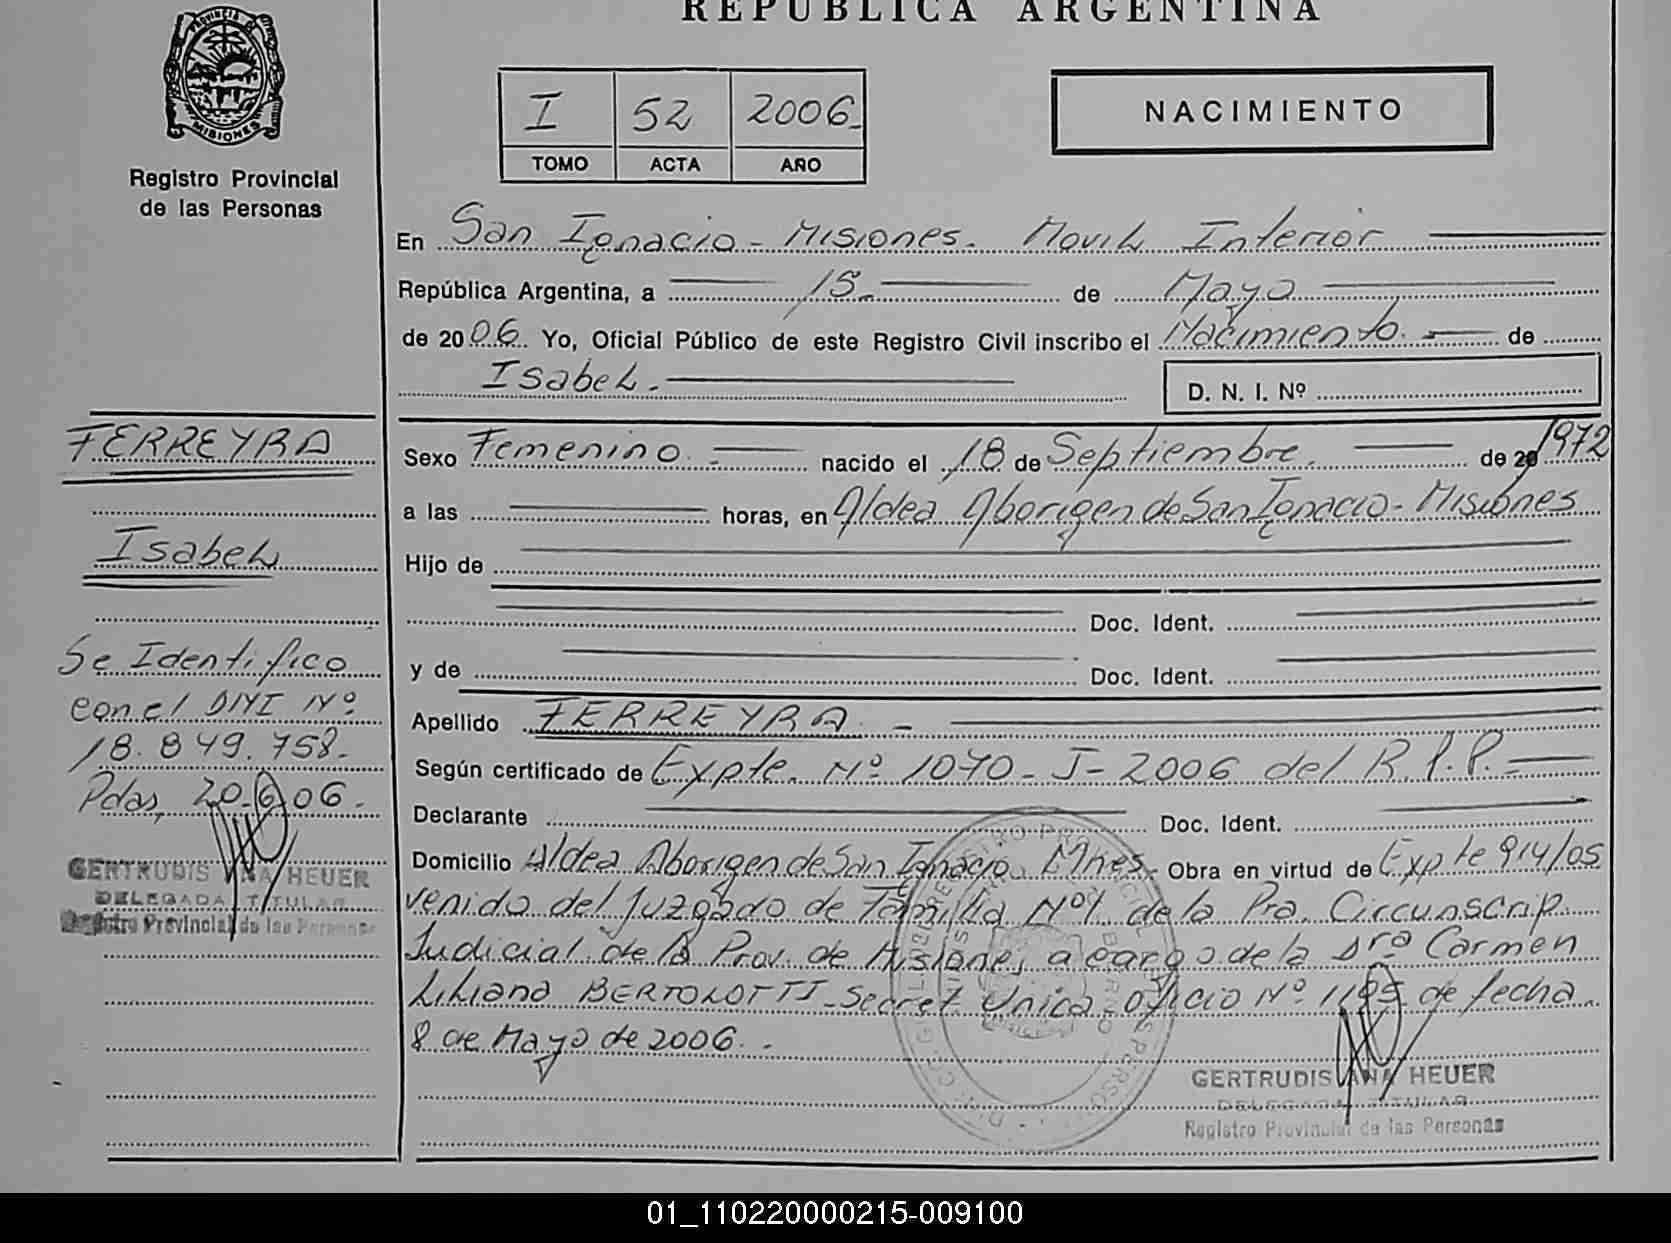 REPUBLICA ARGENTINA
PROVINCIA DE
MISIONES
Registro Provincial
de las Personas
I 52 2006
TOMO ACTA AÑO
NACIMIENTO
En San Ignacio - Misiones. Movil Interior
República Argentina, a 15 de Mayo
de 2006. Yo, Oficial Público de este Registro Civil inscribo el Nacimiento. de
Isabel. D. N. I. Nº
FERREYRA
Isabel
Se Identifico
con el DNI Nº
18.849.758.
Pdas, 20.6.06.
GERTRUDIS ANA HEUER
DELEGADA TITULAR
Registro Provincial de las Personas
Sexo Femenino. nacido el 18 de Septiembre. de 20 1972
a las horas, en Aldea Aborigen de San Ignacio - Misiones
Hijo de
Doc. Ident.
y de Doc. Ident.
Apellido FERREYRA. -
Según certificado de Expte. Nº 1070 - J - 2006 del R.P.P.
Declarante Doc. Ident.
Domicilio Aldea Aborigen de San Ignacio. Mnes. Obra en virtud de Expte 914/05
venido del Juzgado de Familia Nº1 de la Pra. Circunscrip.
Judicial de la Prov. de Misiones a cargo de la Dra Carmen
Liliana BERTOLOTTI - Secret. Unica. Oficio Nº 1195 de fecha
8 de Mayo de 2006.
GERTRUDIS ANA HEUER
DELEGADA TITULAR
Registro Provincial de las Personas
01_110220000215-009100